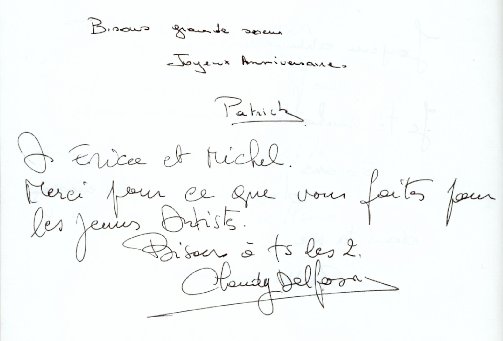 Bisous grande soeur
Joyeux Anniversaire
Patrick
A Erica et Michel.
Merci pour ce que vous faites pour
les jeunes Artists.
Bisous à ts les 2.
Claudy Delfosse